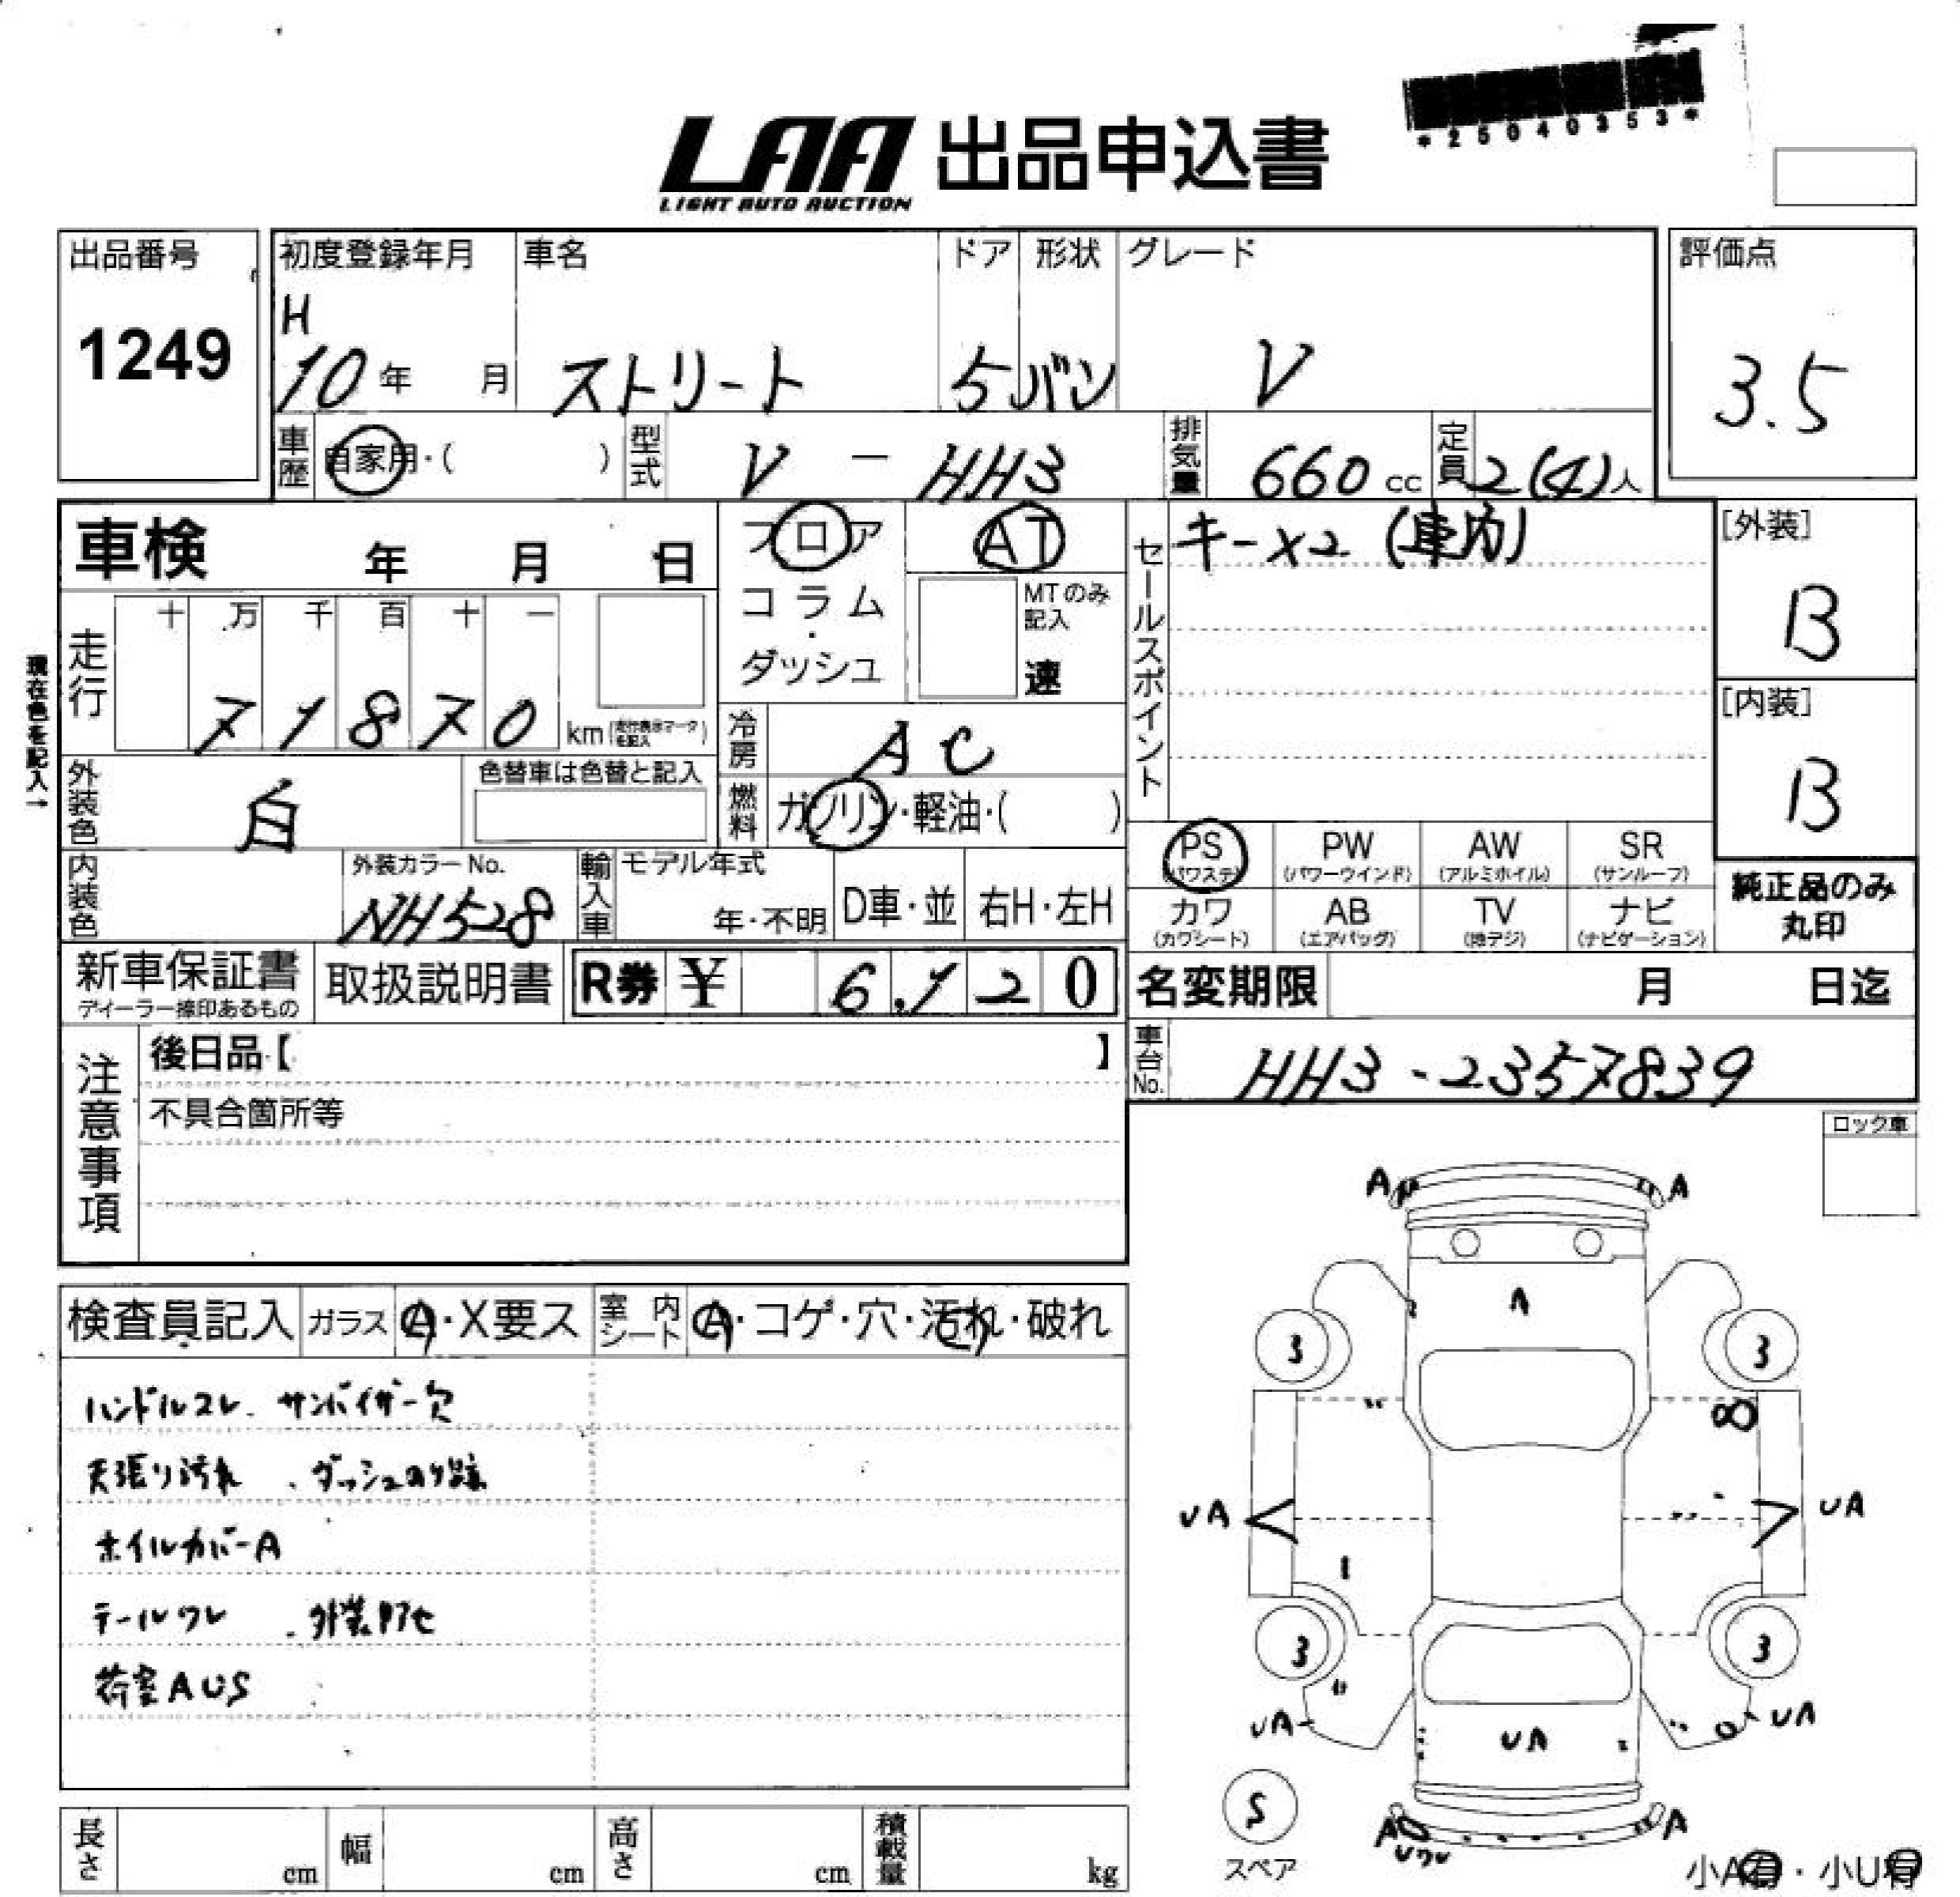 *25040353*
LAA 出品申込書
LIGHT AUTO AUCTION
出品番号 初度登録年月 車名 ドア 形状 グレード 評価点
1249 H 10年 月 ストリート 5 バン V 3.5
車歴 自家用・( ) 型式 V - HH3 排気量 660 cc 定員 2(4)人
車検 年 月 日 フロア AT セールスポイント キー×2 (車内) [外装]
コラム MTのみ記入 B
・
ダッシュ 速
走行 十 万 千 百 十 一 [内装]
71870 km B
現在色を記入→
冷房 AC
外装色 白 色替車は色替と記入 燃料 ガソリン・軽油・( )
PS PW AW SR
(パワステ) (パワーウインド) (アルミホイル) (サンルーフ)
内装色 外装カラーNo. 輸入車 モデル年式 純正品のみ
NH528 年・不明 D車・並 右H・左H カワ AB TV ナビ 丸印
(カワシート) (エアバッグ) (地デジ) (ナビゲーション)
新車保証書 取扱説明書 R券 ¥ 6,120 名変期限 月 日迄
ディーラー捺印あるもの
注意事項 後日品【 】 車台No. HH3-2357839
不具合箇所等
ロック車
A A
検査員記入 ガラス A・X要ス 室内シート A・コゲ・穴・汚れ・破れ
A
3 3
ハンドルコレ サンバイザー欠
天張り汚れ ・ダッシュのり跡
UA UA
ホイルカバーA
テールワレ ・外装アセ
3 3
荷室AUS
UA UA UA
S
スペア
A A
Uワレ
長さ cm 幅 cm 高さ cm 積載量 kg
小A有・小U有